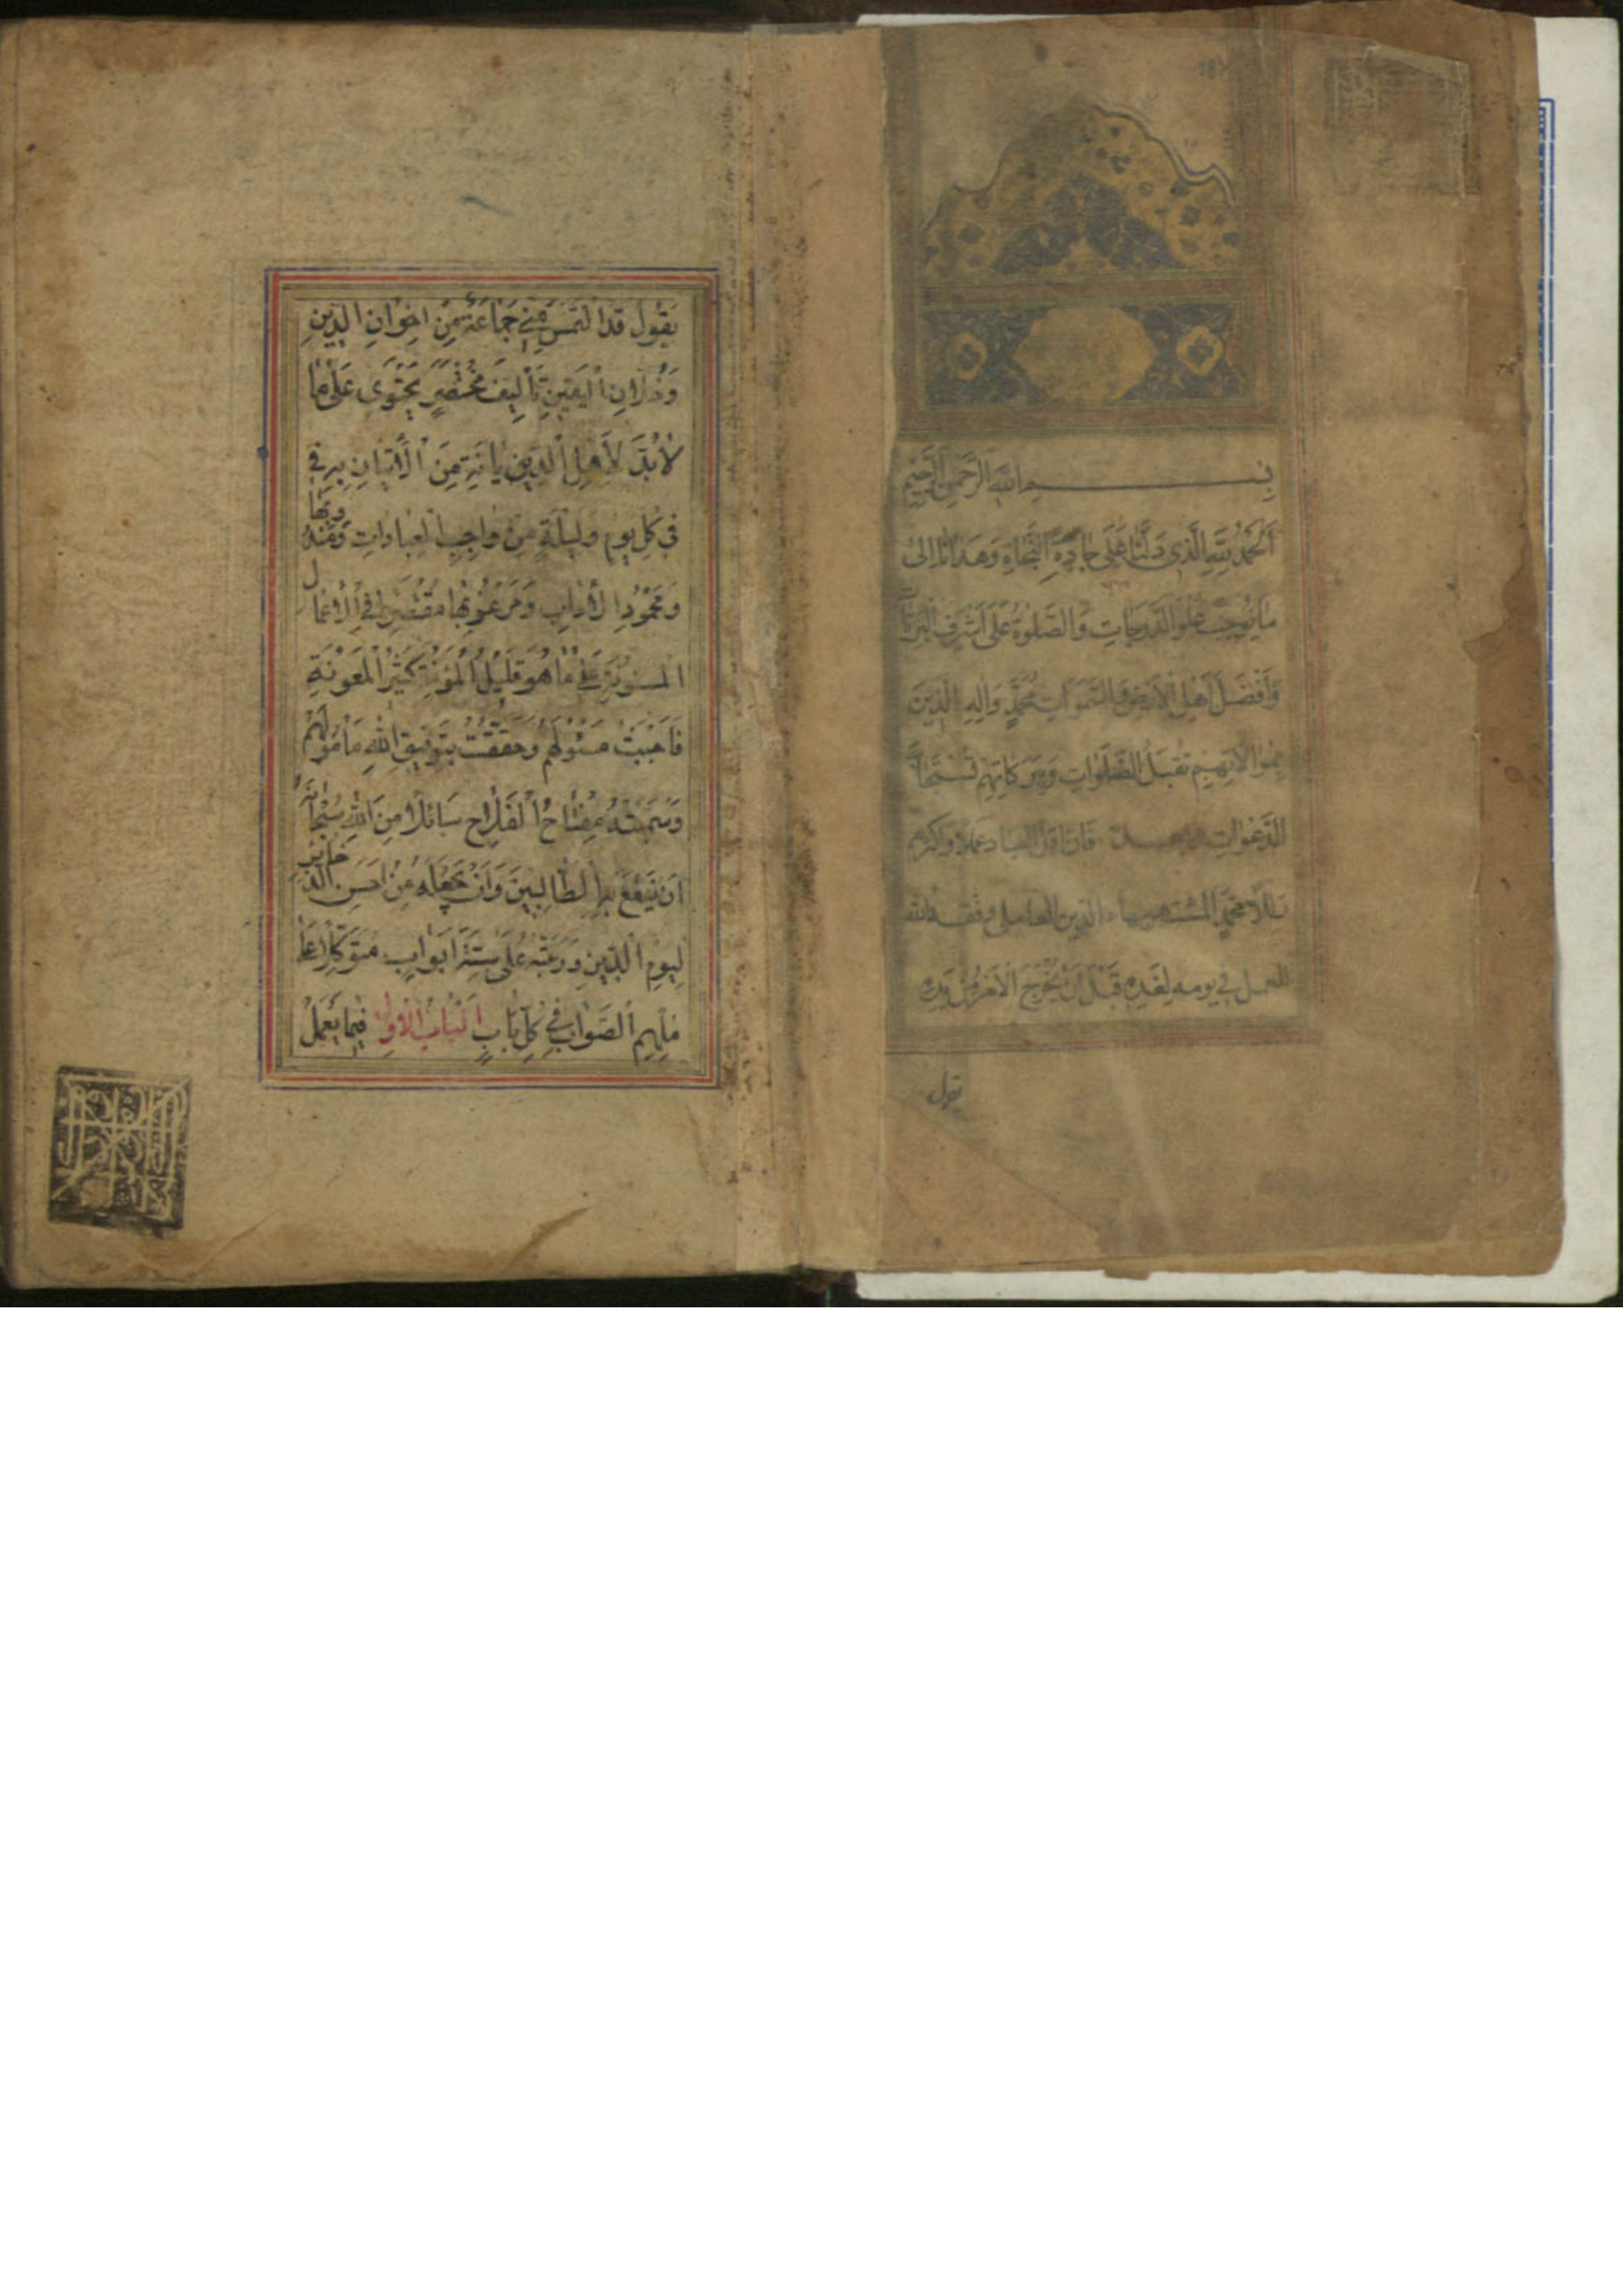 بسم الله الرحمن الرحيم
اَلْحَمْدُ لِلّهِ الَّذي دَلَّنا عَلى جادَّةِ النَّجاةِ وَهَدانا اِلى
ما يُوجِبُ عُلُوَّ الدَّرَجاتِ وَالصَّلوةُ عَلى اَشْرَفِ الْبَرِيّاتِ
وَاَفْضَلِ اَهْلِ الاَرْضِ وَالسَّمَواتِ مُحَمَّدٍ وَالِهِ الَّذينَ
بِمُوالاتِهِمْ تُقْبَلُ الصَّلَواتِ وَبِبَرَكاتِهِمْ تُسْتَجابُ
الدَّعَواتِ فان اقل العباد عملا واكثرهم
زللا محمد المشتهر ببهاء الدين العاملي وفقه الله
للعمل في يومه لِغَدِهِ قَبْلَ اَنْ يَخْرُجَ الاَمْرُ مِنْ يَدِهِ
يقول
يَقُول قَدِ الْتَمَسَ مِنّي جَماعَةٌ مِنْ اِخْوانِ الدّينِ
وَخُلّانِ الْيَقينِ تَأْليفَ مُخْتَصَرٍ يَحْتَوي عَلى ما
لابُدَّ لاَهْلِ الدّينِ مِنَ الاِتْيانِ بِهِ
في كُلِّ يَومٍ وَلَيْلَةٍ مِنْ واجِبِ الْعِباداتِ وَمَنْدُوبِها
وَمَحْمُودِ الْادابِ وَمَرْغُوبِها مُقْتَصِراً فِي الْاَعْمالِ
الْمَسْنُونَةِ عَلى ما هُوَ قَليلُ الْمَؤُنَةِ كَثيرُ الْمَعُونَةِ
فَاَجَبْتُ مَسْئُولَهُمْ وَحَقَّقْتُ بِتَوْفيقِ اللهِ مَأْمُولَهُمْ
وَسَمَّيْتُهُ مِفْتاحُ الْفَلاحِ سائِلاً مِنَ اللهِ سُبْحانَهُ
اَنْ يَنْفَعَ بِهِ الطّالِبينَ وَاَنْ يَجْعَلَهُ مِنْ اَحْسَنِ الذَّخايِرِ
لِيَومِ الدّينِ وَرَتَّبْتُهُ عَلى سِتَّةِ اَبْوابٍ مُتَوَكِّلاً عَلى
مُلْهِمِ الصَّوابِ في كُلِّ بابٍ اَلْبابُ الْاَوَّلُ فيما يُعْمَلُ